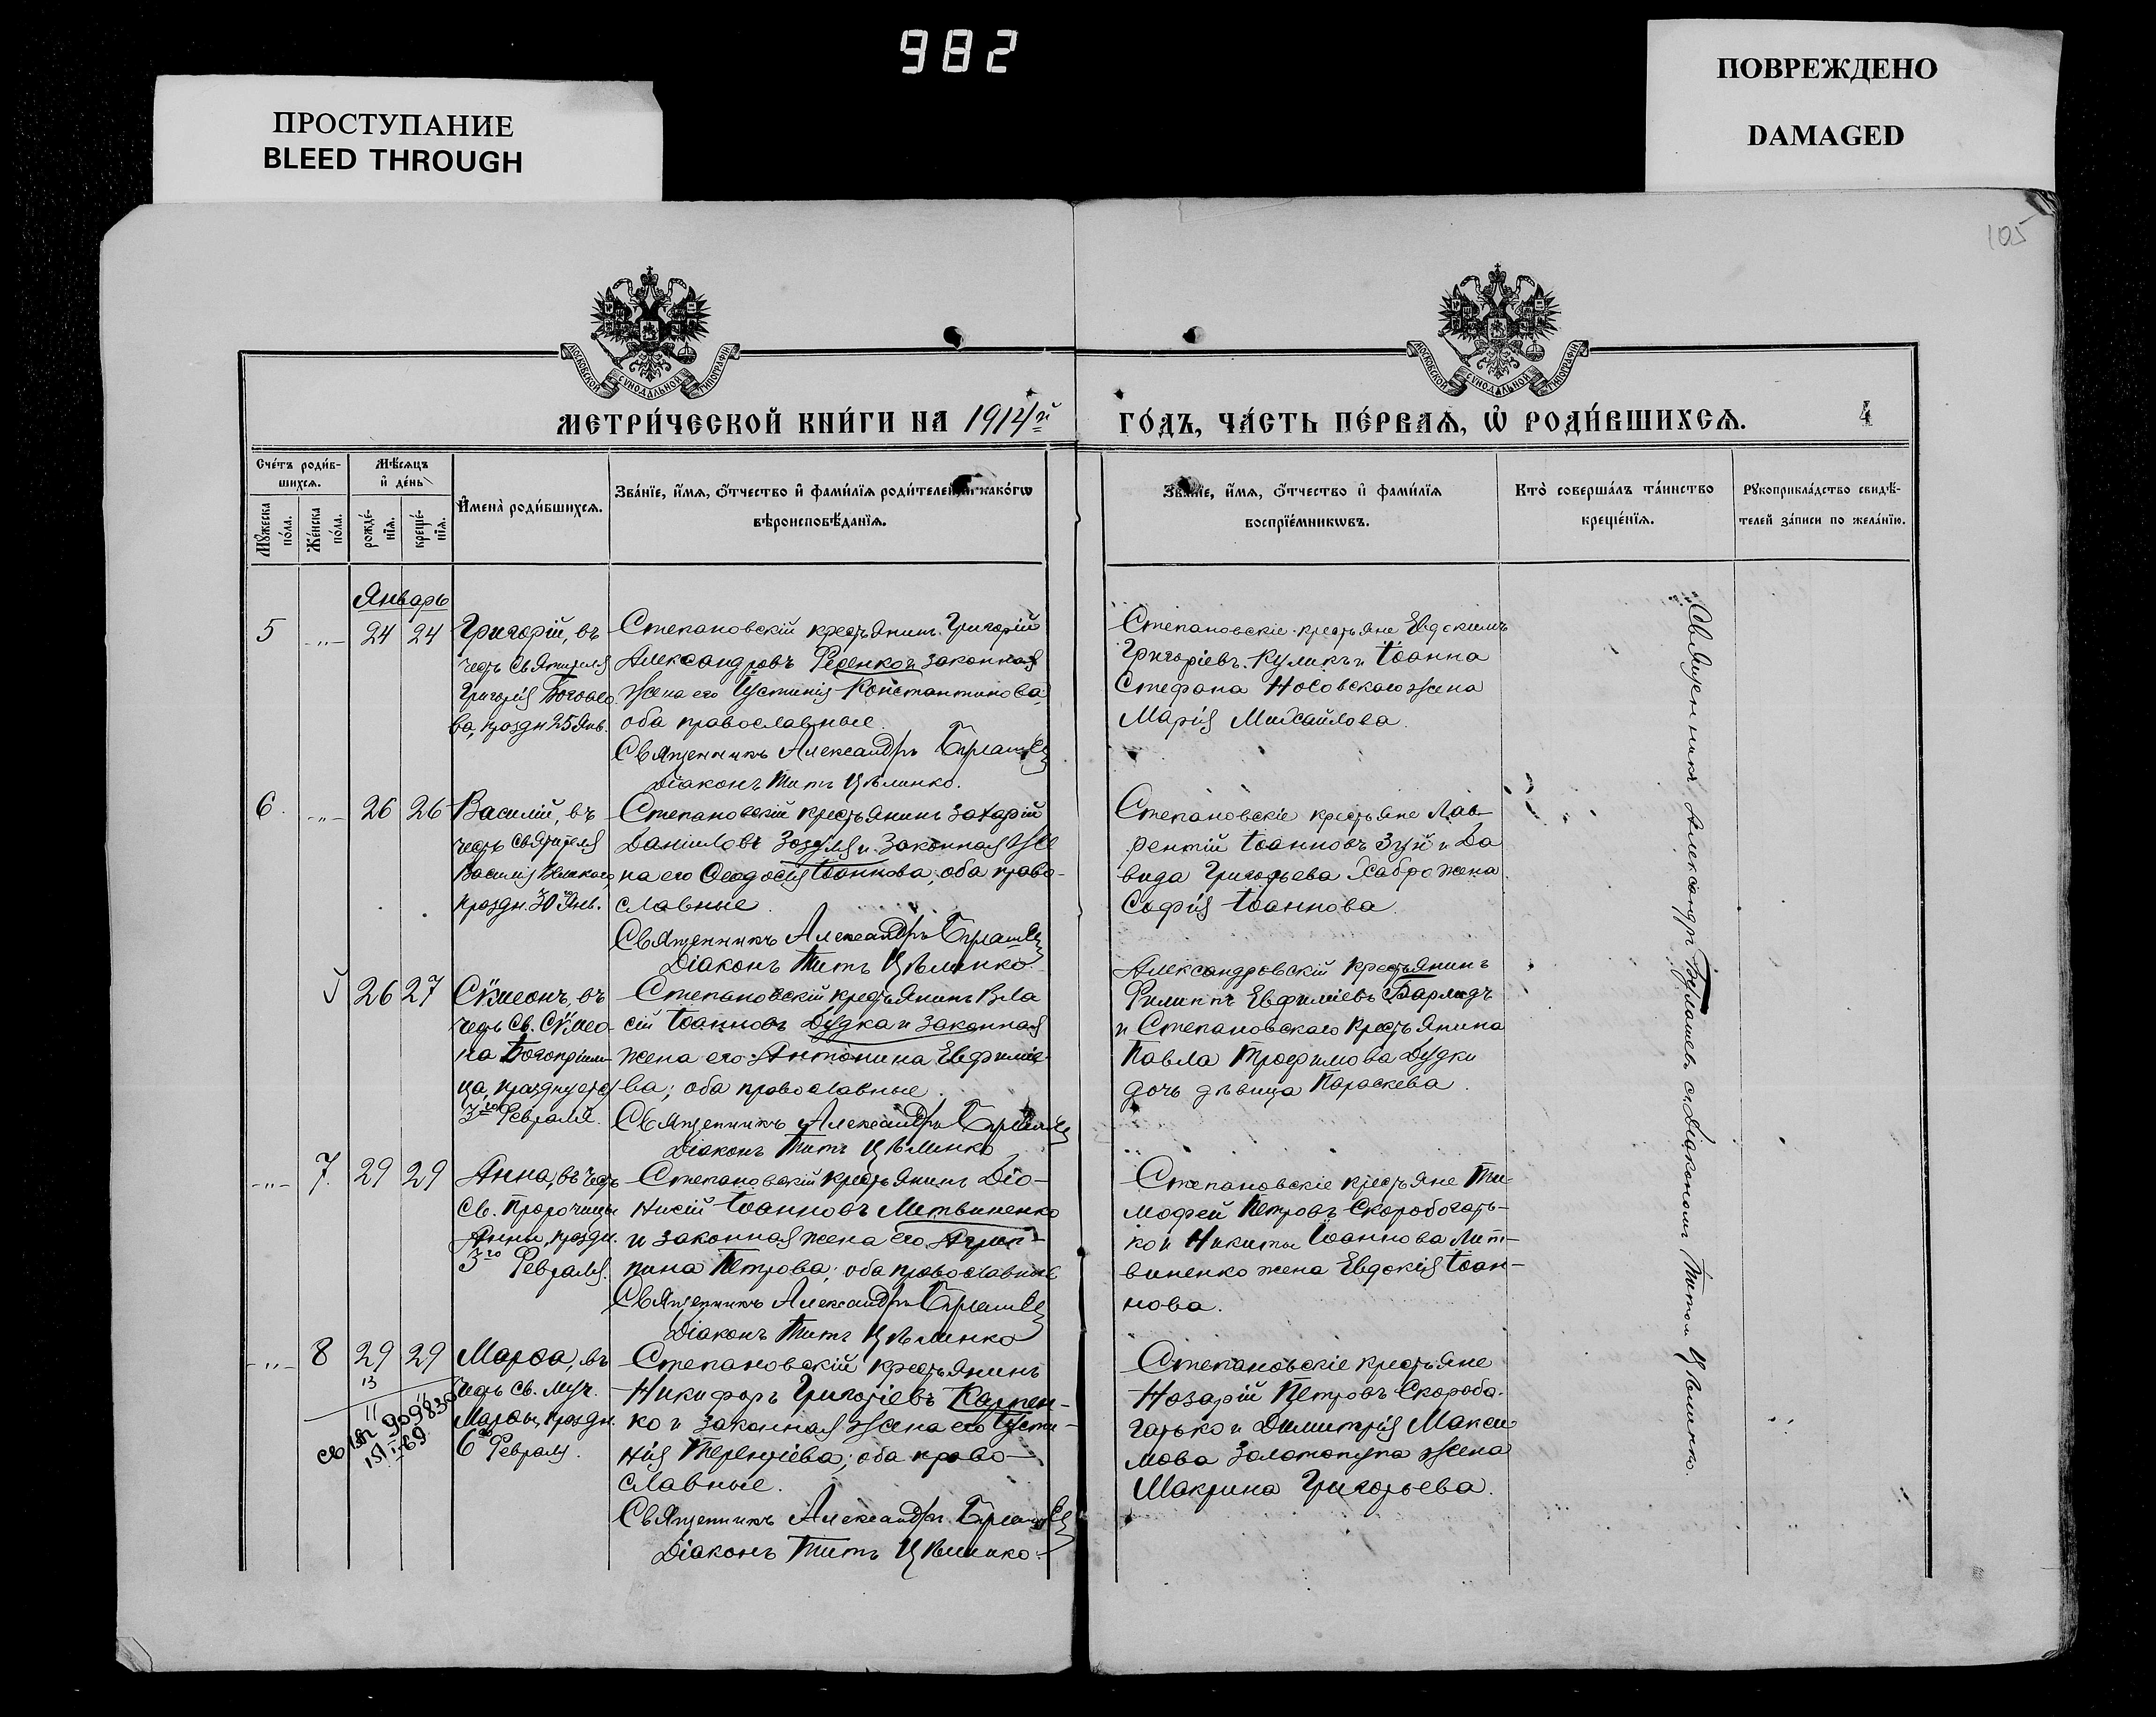 982
ПРОСТУПАНИЕ
BLEED THROUGH
ПОВРЕЖДЕНО
DAMAGED
105
МОСКОВСКОЙ СУНОДАЛЬНОЙ ТИПОГРАФІИ
МОСКОВСКОЙ СУНОДАЛЬНОЙ ТИПОГРАФІИ
МЕТРИ́ЧЕСКОЙ КНИ́ГИ НА 1914й
ГО́ДЪ, ЧА́СТЬ ПЕ́РВАѦ, Ѡ РОДИ́ВШИХСѦ.
4
Сче́тъ роди́в-
шихсѧ.
Мꙋжеска по́ла.
Же́нска по́ла.
Мѣ́сѧцъ
и де́нь
рожде́-
нїѧ.
креще́-
нїѧ.
Имена̀ роди́вшихсѧ.
Зва́нїе, и́мѧ, о́тчество и фами́лїѧ роди́телей, и како́гѡ
вѣроисповѣ́данїѧ.
Зва́нїе, и́мѧ, о́тчество и фами́лїѧ
воспрїе́мникѡвъ.
Кто̀ соверша́лъ та́инство
креще́нїѧ.
Рꙋкоприкла́дство свидѣ́-
телей за́писи по жела́нїю.
Январь
5 -„- 24 24
Григорій, въ
честь Святителя
Григорія Богосло
ва, праздн 25 Янв.
Степановскій крестьянинъ Григорій
Александровъ Феденко и законная
жена его Іустинія Константинова,
оба православные.
Священникъ Александръ
Діаконъ Титъ Цѣлинко.
Степановскіе крестьяне Евдокимъ
Григоріевъ Куликъ и Іоанна
Стефана Носовскаго жена
Марія Михайлова.
6 -„- 26 26
Василій, въ
честь Святителя
Василія Великаго,
праздн. 30го Янв.
Степановскій крестьянинъ Захарій
Даніиловъ Зозуля и законная же
на его Ѳеодосія Іоаннова; оба право-
славные.
Священникъ Александръ
Діаконъ Титъ Цѣлинко.
Степановскіе крестьяне Лав-
рентій Іоанновъ Зуй и Да
вида Григорьева Хабро жена
Софія Іоаннова.
26 27
Сѵмеонъ, въ
честь Св. Сѵмео-
на Богопріим-
ца, празднуется
3го Февраля.
Степановскій крестьянинъ Вла
сій Іоанновъ Дудка и законная
жена его Антонина Евфиміе-
ва; оба православные.
Священникъ Александръ
Діаконъ Титъ Цѣлинко
Александровскій крестьянинъ
Филиппъ Евфиміевъ
и Степановскаго крестьянина
Павла Трофимова Дудки
дочь дѣвица Параскева.
-„- 7. 29 29
Анна, въ честь
Св. Пророчицы
Анны, праздн.
3го Февраля.
Степановскій крестьянинъ Діо-
нисій Іоанновъ Литвиненко
и законная жена его Агрип-
пина Петрова; оба православные
Священникъ Александръ
Діаконъ Титъ Цѣлинко
Степановскіе крестьяне Ти-
мофей Петровъ Скоробогать-
ко и Никиты Іоаннова Лит-
виненко жена Евдокія Іоан-
нова.
-„- 8 29 29
13
Марѳа, въ
честь св. муч.
Марѳы, праздн.
6го Февраля.
Степановскій крестьянинъ
Никифоръ Григоріевъ Карпен-
ко и законная жена его Іусти-
нія Терентіева; оба право-
славные.
Священникъ Александръ
Діаконъ Титъ Цѣлинко.
Степановскіе крестьяне
Назарій Петровъ Скоробо-
гатько и Димитрія Макси
мова Золотопупа жена
Макрина Григорьева.
Священникъ Александръ съ Діакономъ Титомъ Цѣлинко.